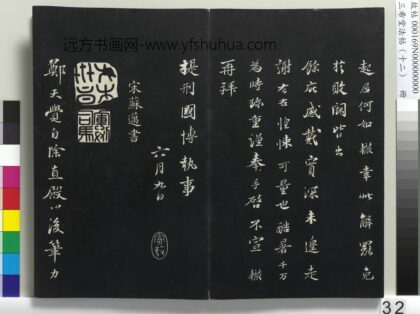 远方书画网-www.yfshuhua.com
起居何如辙幸此解罢免
於败阙皆出
馀庇感戴实深未遑走
谢右右惶悚可量也酷暑千万
為時珍重謹奉手啓不宣 辙
再拜
六月九日
提刑國博執事
宋蘇邁書
鄭天覺自除直殿以後筆力
故帖 000169N000000000
三希堂法帖（十二） 冊
32